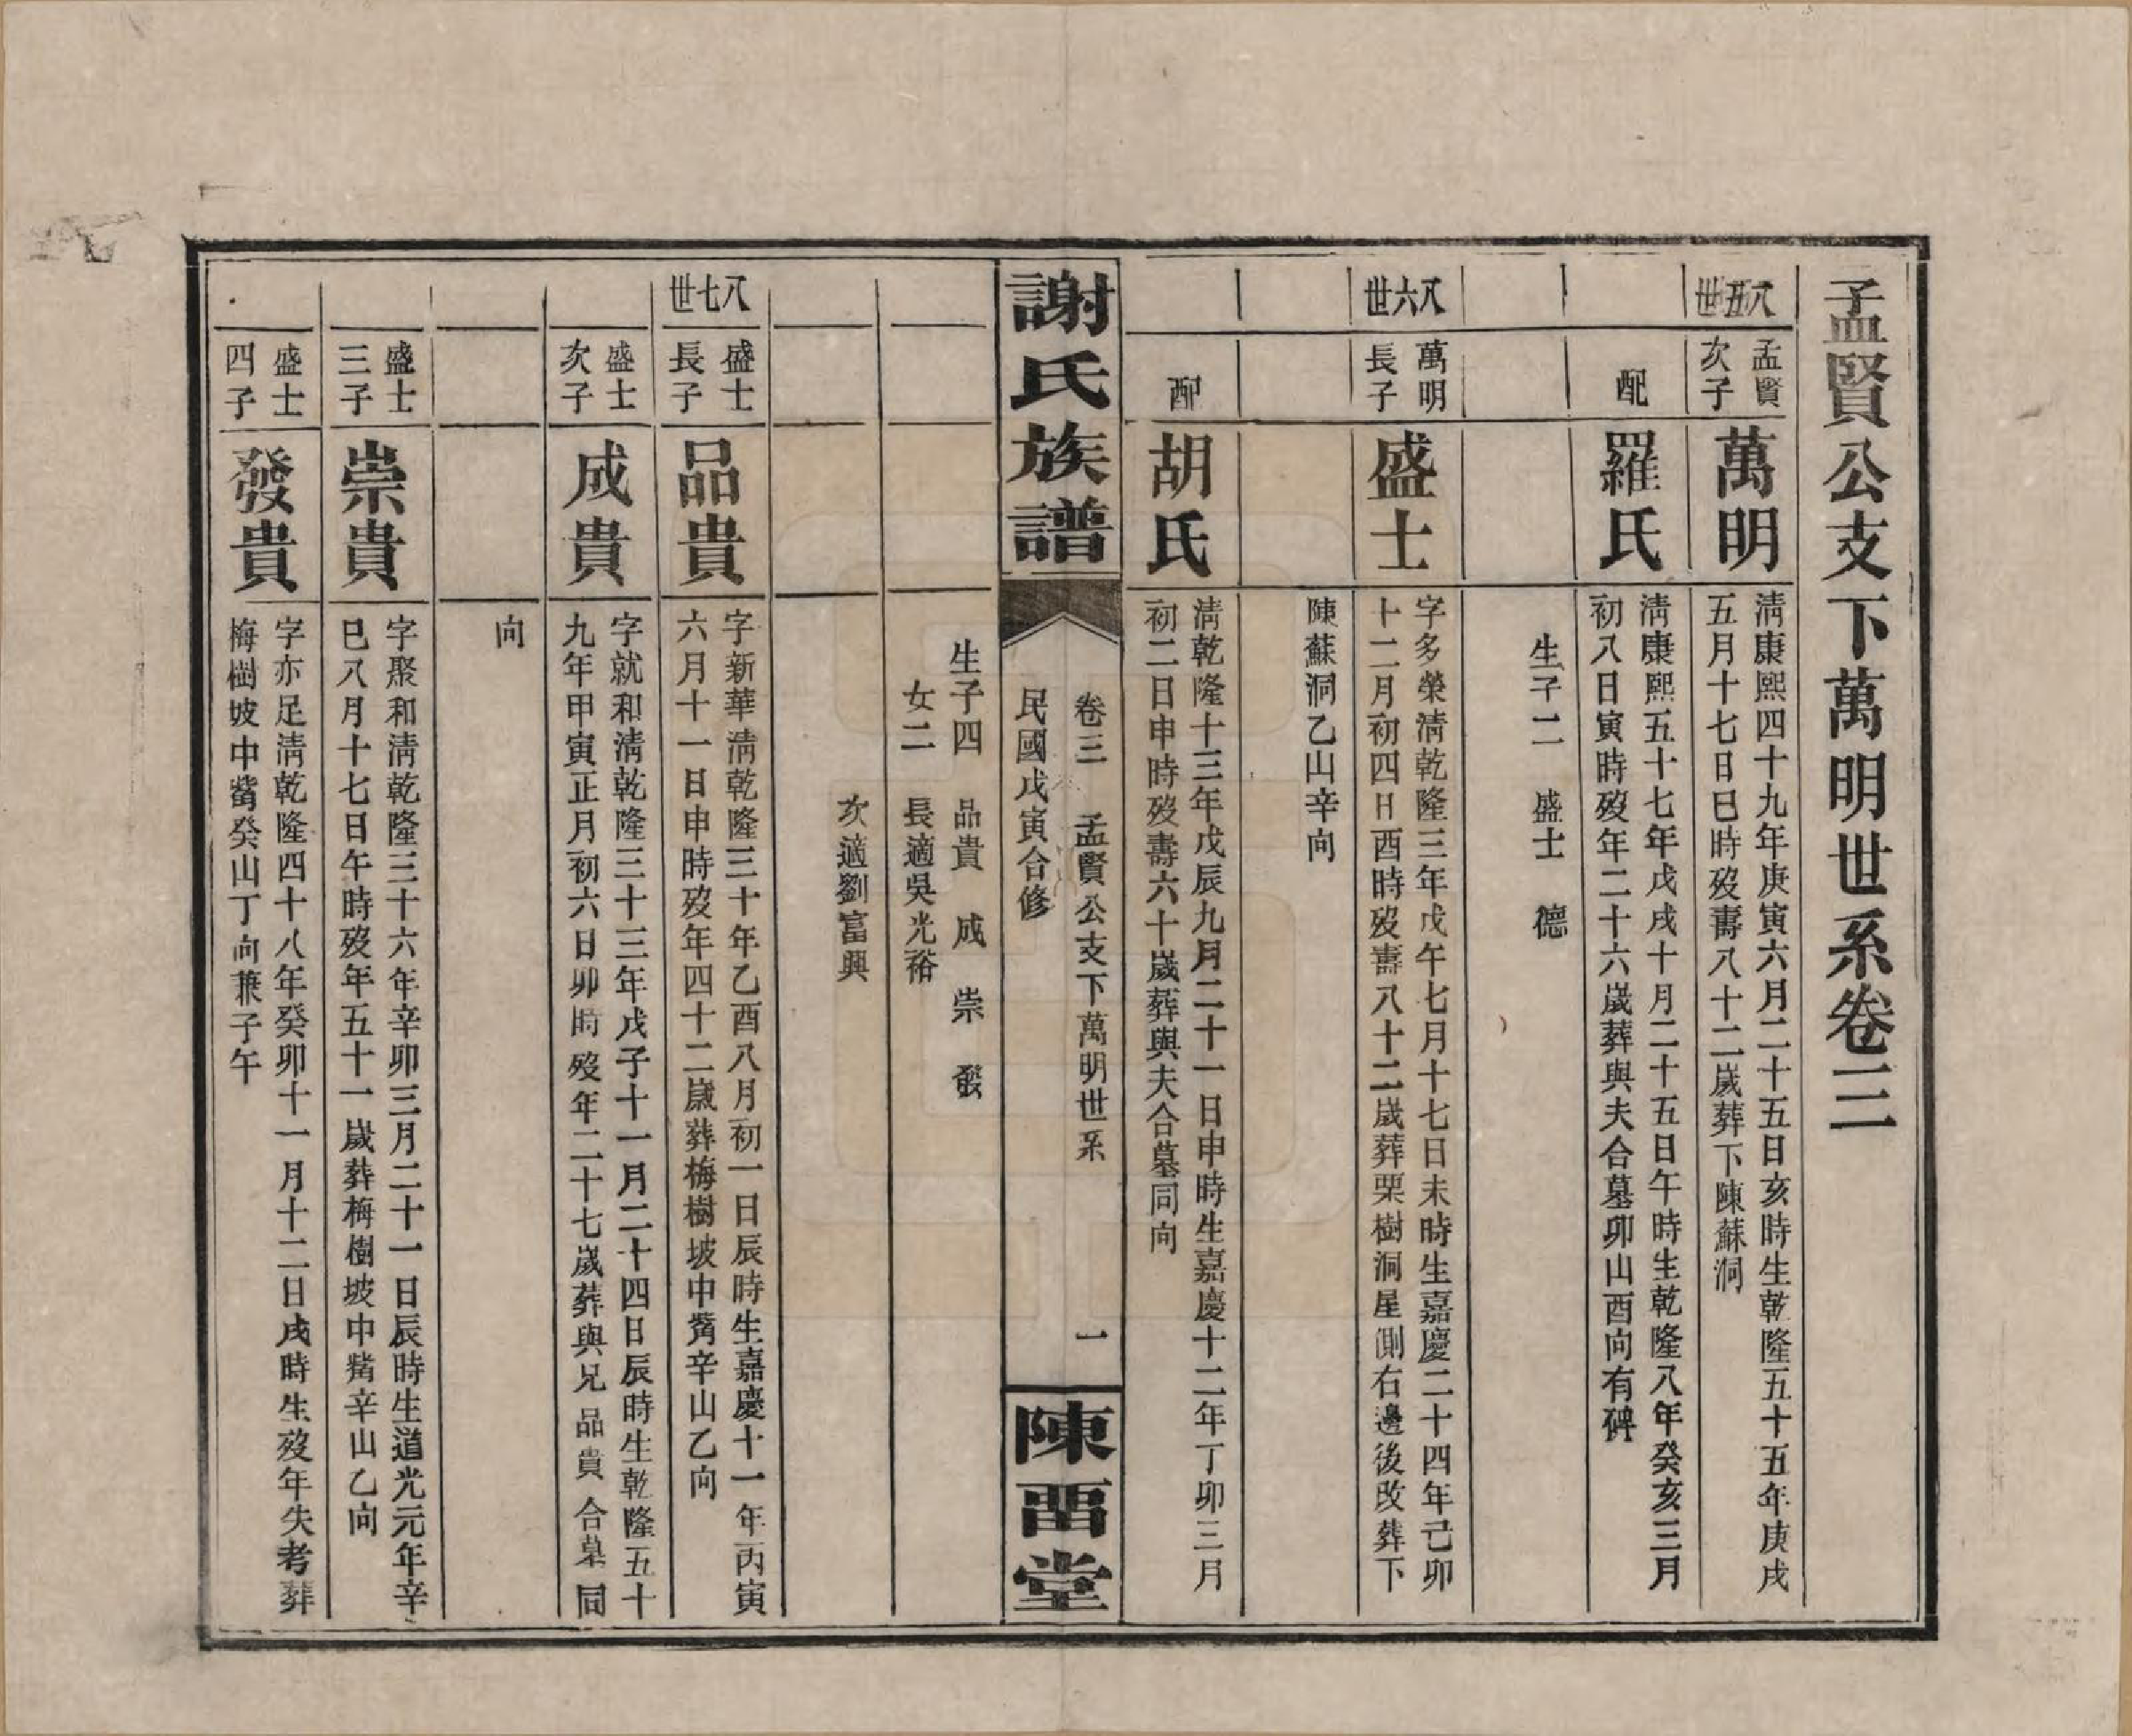 孟賢公支下萬明世系卷三
八五世
孟賢
次子
萬明
淸康熙四十九年庚寅六月二十五日亥時生乾隆五十五年庚戌
五月十七日巳時歿壽八十二歲葬下陳蘇洞
配
羅氏
淸康熙五十七年戊戌十月二十五日午時生乾隆八年癸亥三月
初八日寅時歿年二十六歲葬與夫合墓卯山酉向有碑
生子二 盛士 德
八六世
萬明
長子
盛士
字多榮淸乾隆三年戊午七月十七日未時生嘉慶二十四年己卯
十二月初四日酉時歿壽八十二歲葬栗樹洞星側右邊後改葬下
陳蘇洞乙山辛向
配
胡氏
淸乾隆十三年戊辰九月二十一日申時生嘉慶十二年丁卯三月
初二日申時歿壽六十歲葬與夫合墓同向
謝氏族譜
卷三 孟賢公支下萬明世系 一
民國戊寅合修
陳西堂
生子四 品貴 成 崇 發
女二 長適吳光裕
次適劉富興
八七世
盛士
長子
品貴
字新華淸乾隆三十年乙酉八月初一日辰時生嘉慶十一年丙寅
六月十一日申時歿年四十二歲葬梅樹坡中嘴辛山乙向
盛士
次子
成貴
字就和淸乾隆三十三年戊子十一月二十四日辰時生乾隆五十
九年甲寅正月初六日卯時歿年二十七歲葬與兄品貴合墓同
向
盛士
三子
崇貴
字聚和淸乾隆三十六年辛卯三月二十一日辰時生道光元年辛
巳八月十七日午時歿年五十一歲葬梅樹坡中嘴辛山乙向
盛士
四子
發貴
字亦足淸乾隆四十八年癸卯十一月十二日戌時生歿年失考葬
梅樹坡中嘴癸山丁向兼子午